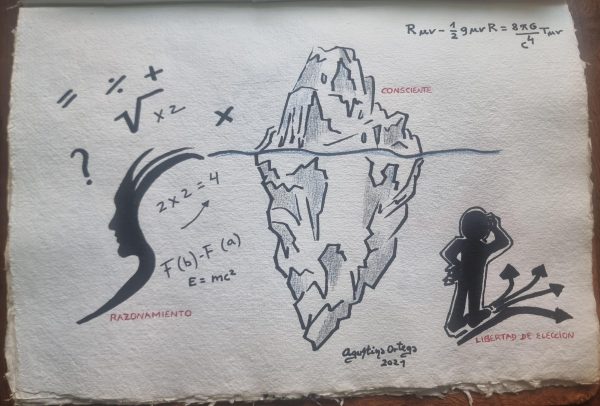 Rμν - 1/2 gμν R = 8πG/c⁴ Tμν
= ÷ +
√ x 2
x
CONSCIENTE
?
2 x 2 = 4
F(b)-F(a)
E = mc²
RAZONAMIENTO
LIBERTAD DE ELECCION
Agustina Ortega
2021